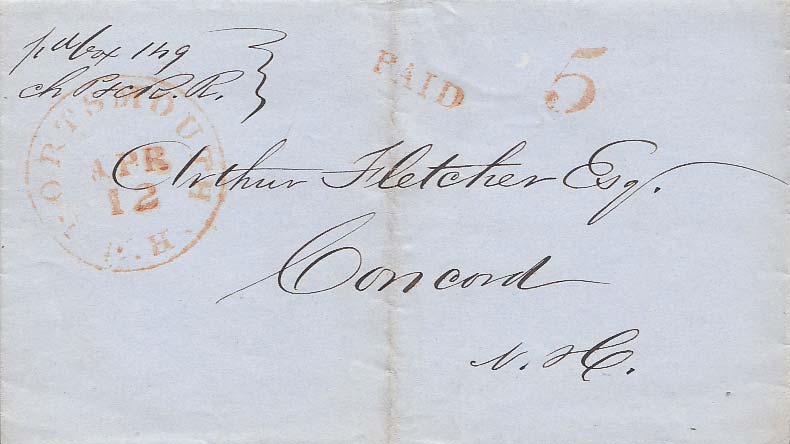 pd box 149
ch P & C R. R.
PAID
5
PORTSMOUTH
N.H.
APR
12
Arthur Fletcher Esq.
Concord
N. H.